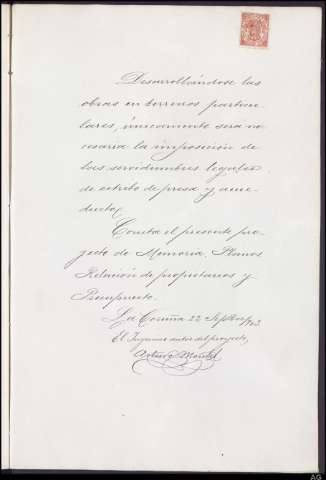 Desarrollándose las
obras en terrenos particu
lares, únicamente será ne
cesaria la imposición de
las servidumbres legales
de estribo de presa y acue-
ducto.
Consta el presente pro-
yecto de Memoria, Planos
Relación de propietarios y
Presupuesto.
La Coruña 22 Sepbre 1903
El Ingeniero autor del proyecto,
Arturo
AG